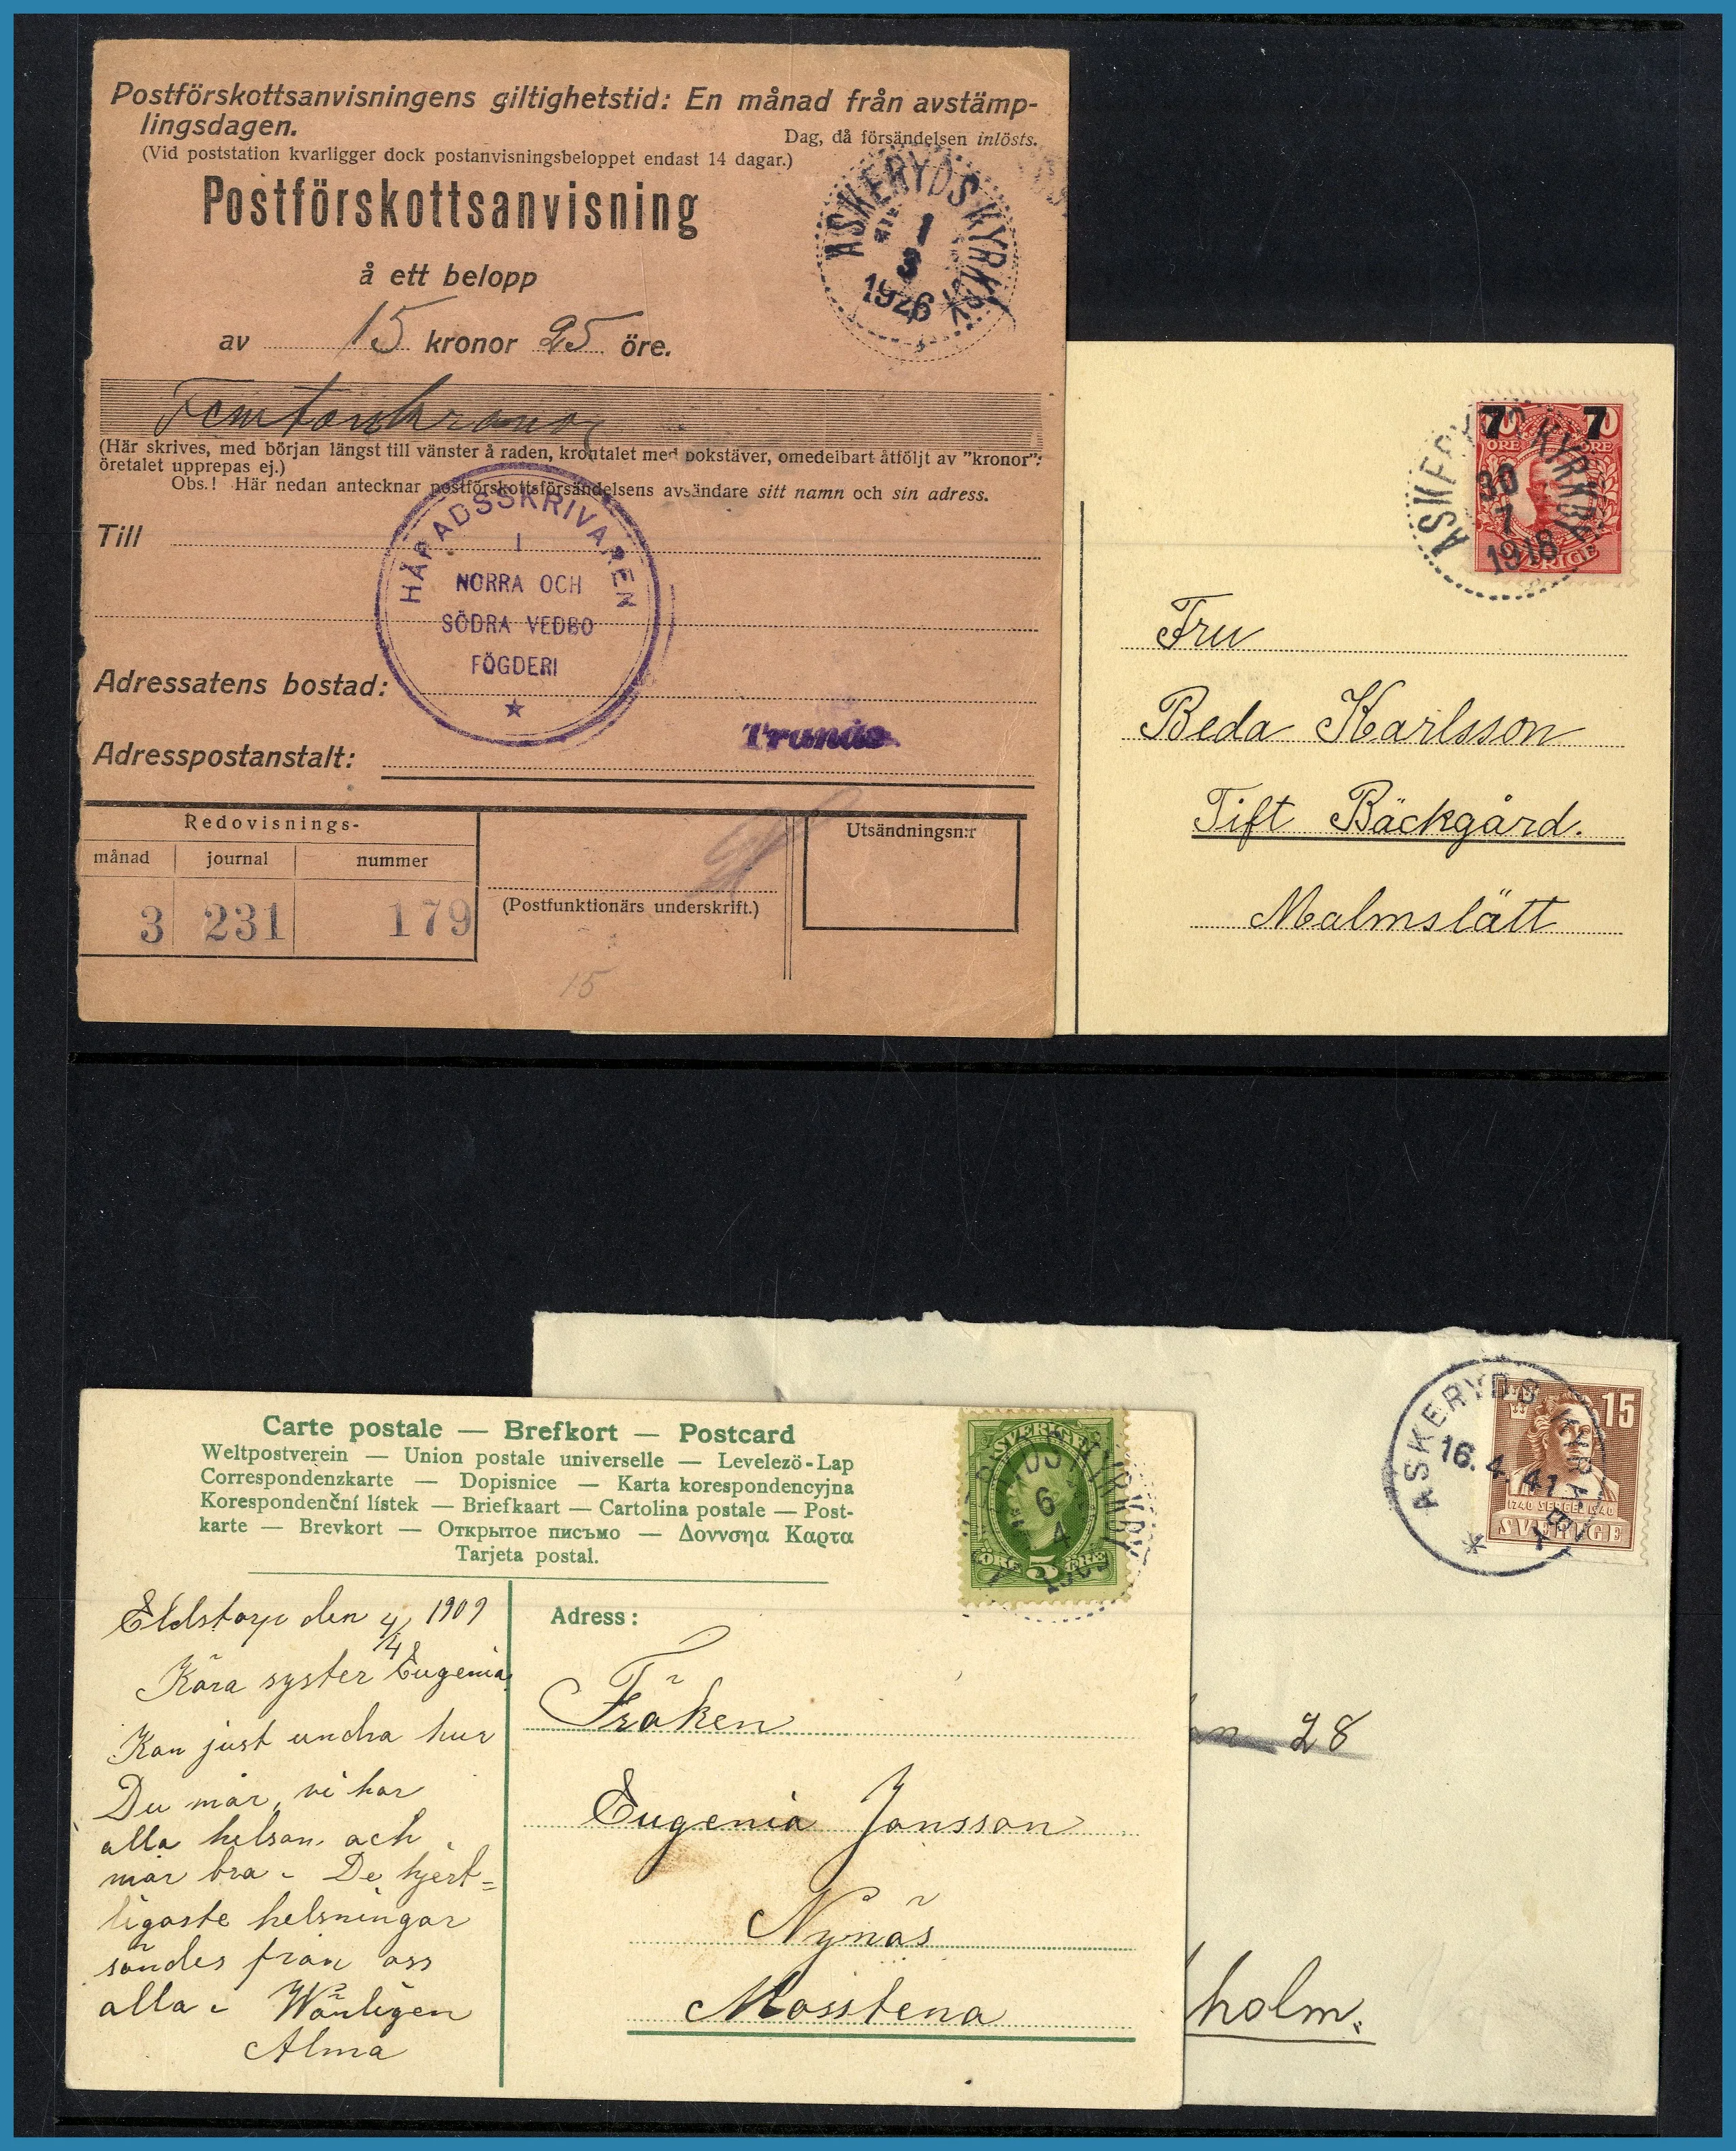 Postförskottsanvisningens giltighetstid: En månad från avstämp-
lingsdagen.
Dag, då försändelsen inlösts.
(Vid poststation kvarligger dock postanvisningsbeloppet endast 14 dagar.)
Postförskottsanvisning
ASKERYDS KYRKBY
1
3
1926
å ett belopp
av 15 kronor 25 öre.
Femtonkronor
(Här skrives, med början längst till vänster å raden, krontalet med bokstäver, omedelbart åtföljt av "kronor":
öretalet upprepas ej.)
Obs.! Här nedan antecknar postförskottsförsändelsens avsändare sitt namn och sin adress.
Till
HÄRADSSKRIVAREN
I
NORRA OCH
SÖDRA VEDBO
FÖGDERI
Adressatens bostad:
Tranås
Adresspostanstalt:
Redovisnings-
månad journal nummer
3 231 179
(Postfunktionärs underskrift.)
Utsändningsn:r
15
7 7
ÖRE ÖRE
SVERIGE
ASKERYDS KYRKBY
30
7
1918
Fru
Beda Karlsson
Tift Bäckgård.
Malmslätt
15
1740 SERGEL 1940
SVERIGE
ASKERYDS KYRKBY
16.4.41
28
holm.
Carte postale — Brefkort — Postcard
Weltpostverein — Union postale universelle — Levelező-Lap
Correspondenzkarte — Dopisnice — Karta korespondencyjna
Korespondenční lístek — Briefkaart — Cartolina postale — Post-
karte — Brevkort — Открытое письмо — Δοννσηα Καρτα
Tarjeta postal.
SVERIGE
ÖRE 5 ÖRE
RYDS KYRKBY
6
4
Eldstorp den 4/4 1909
Kära syster Eugenia
Kan just undra hur
Du mår, vi har
alla helsan och
mår bra - De hjert=
ligaste helsningar
sändes från oss
alla - Wänligen
Alma
Adress:
Fröken
Eugenia Jonsson
Nynäs
Mosstena